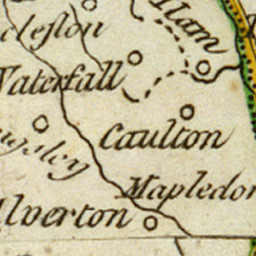 cleston
Ilam
Waterfall
Caulton
ngsley
Mapledor
Alverton